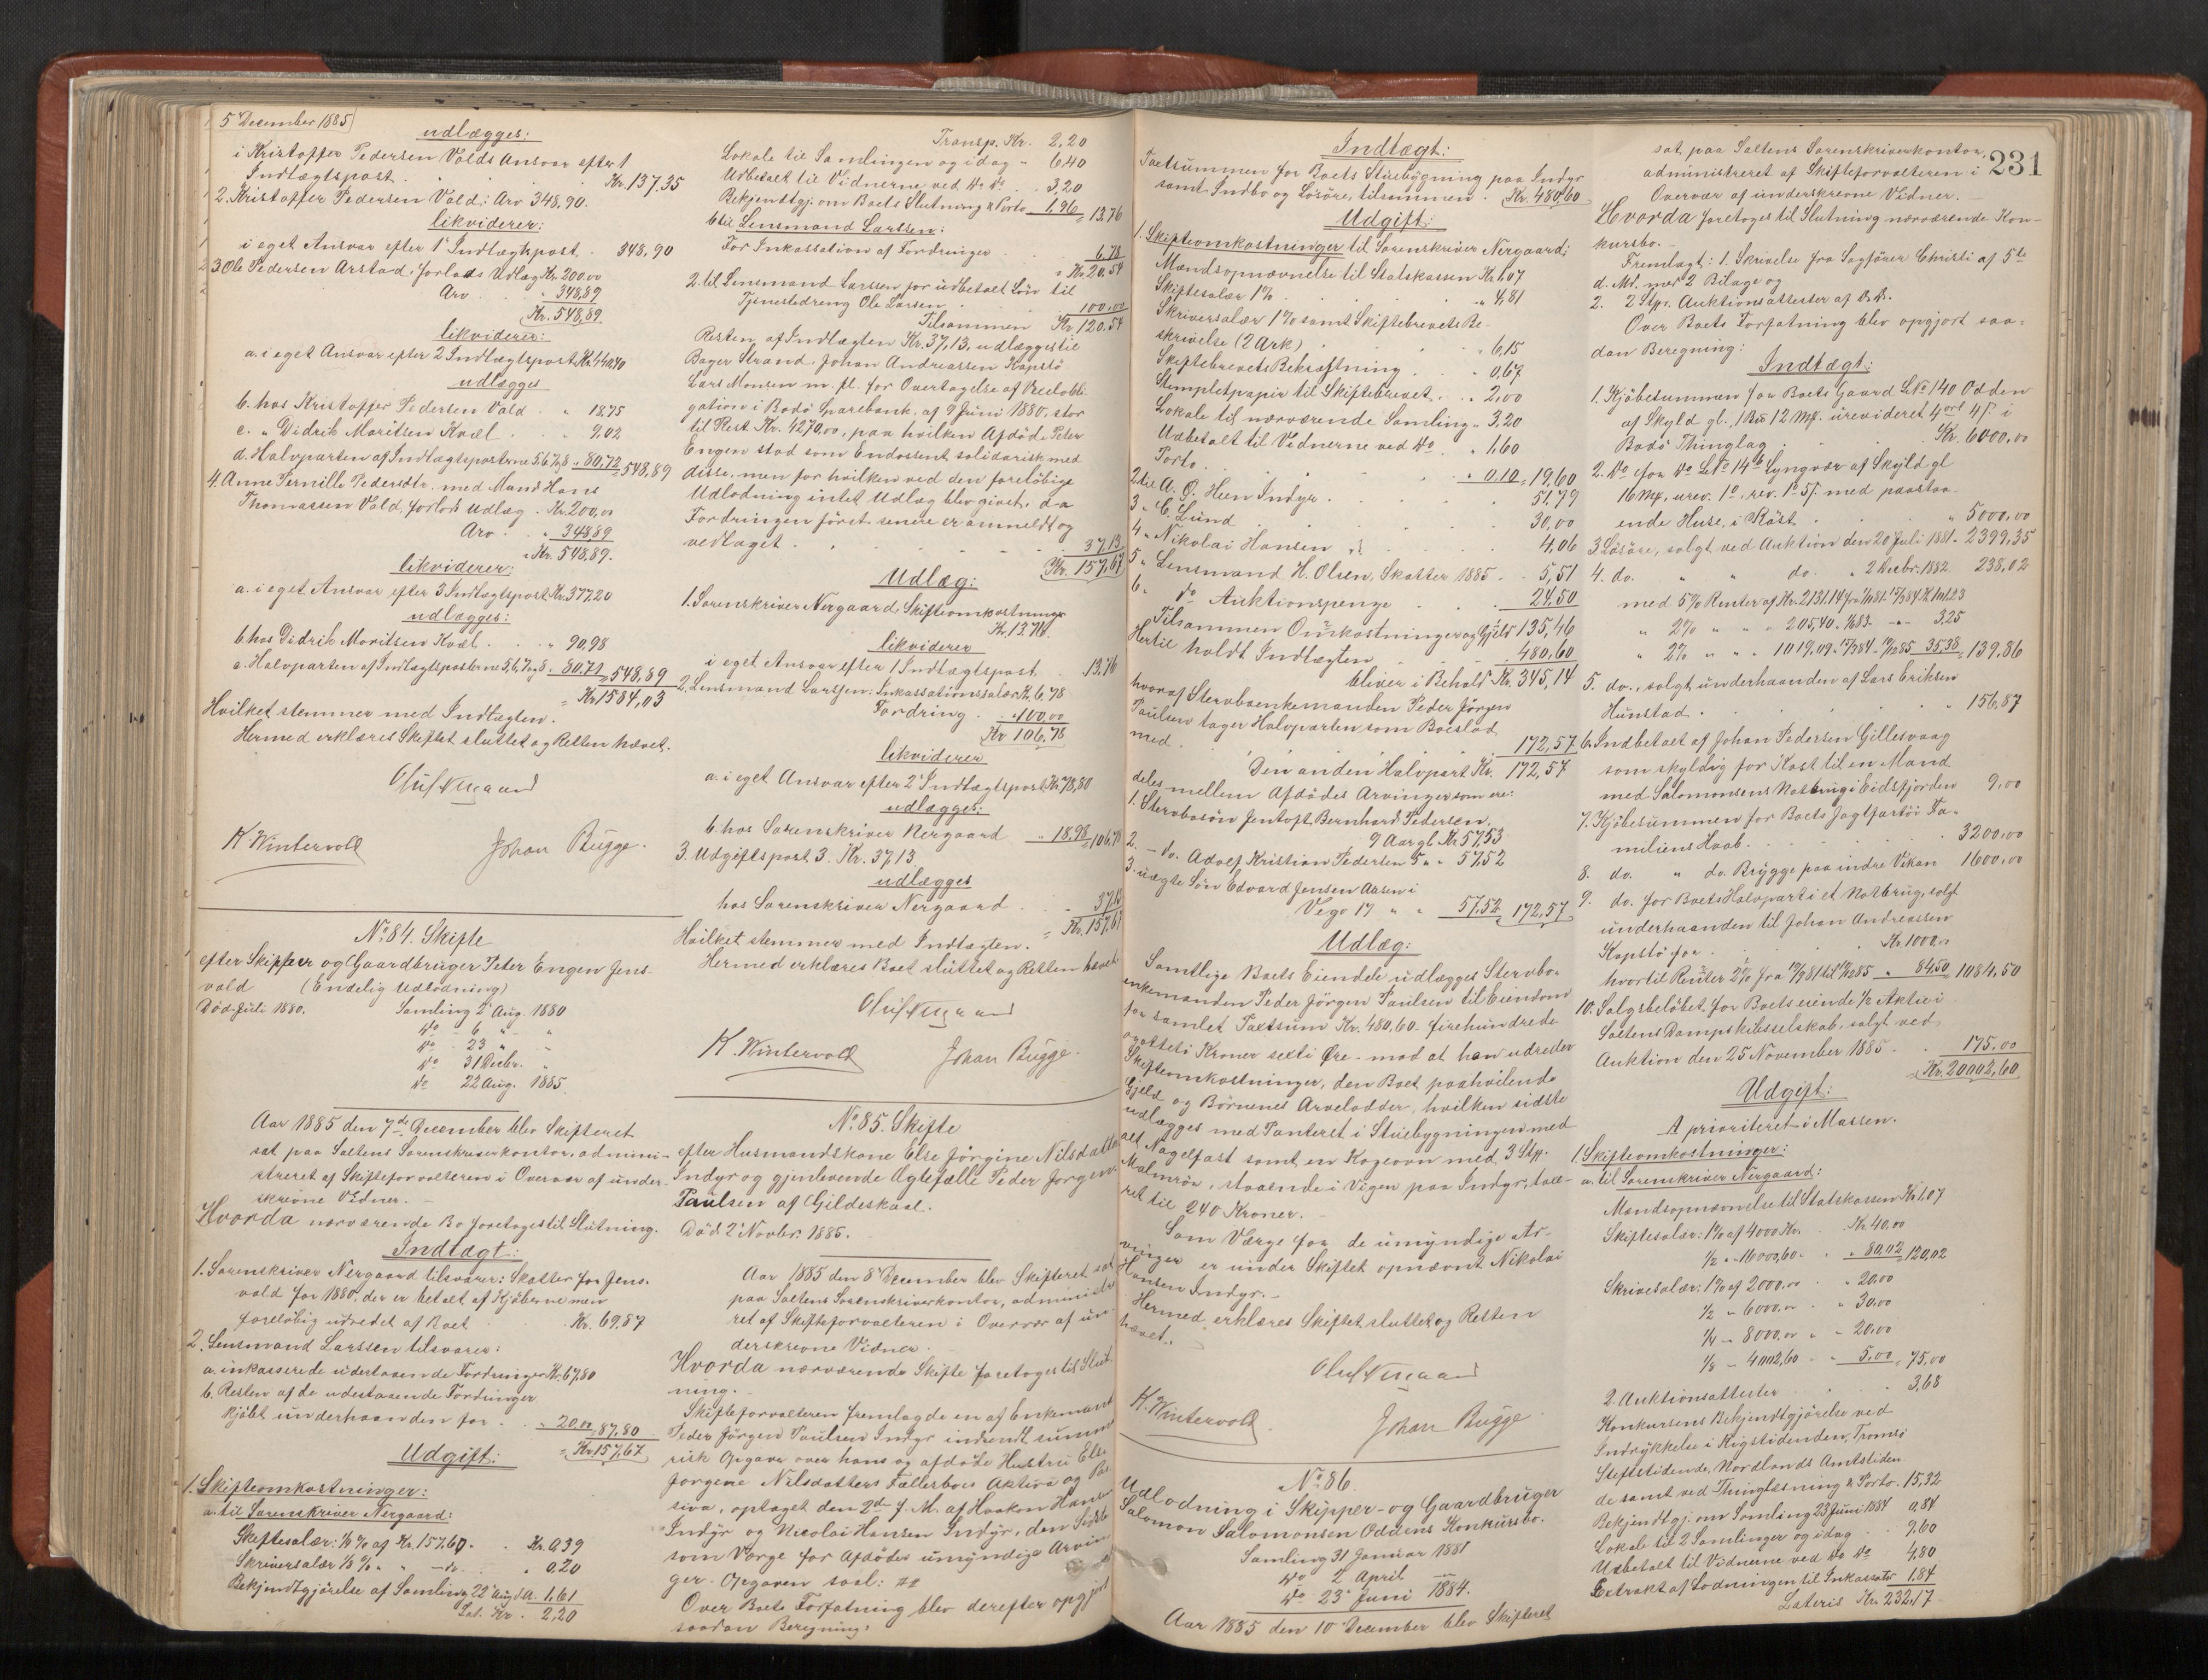 5 December 1885
udlægges:
i Kristoffer Pedersen Volds Ansvar efter 1
Indtægtspost . . . Kr. 137,35
2. Kristoffer Pedersen Vold: Arv 348,90.
likviderer:
i eget Ansvar efter 1ste Indtægtspost . 348,90
3. Ole Pedersen Arstad: forlods Udlæg Kr. 200,00
Arv . . " 348,89
Kr. 548,89.
likviderer:
a. i eget Ansvar efter 2 Indtægtspost Kr. 440,40
udlægges
b. hos Kristoffer Pedersen Vold . " 18,75
c. " Didrik Moritsen Kvæl . . " 9,02
d. Halvparten af Indtægtsposterne 5, 6, 7 og 8 " 80,72 548,89
4. Anne Pernille Pedersdtr. med Mand Hans
Thomassen Vold, forlods Udlæg . Kr. 200,00
Arv . . " 348,89
Kr. 548,89.
likviderer:
a. i eget Ansvar efter 3 Indtægtspost Kr. 377,20
udlægges:
b. hos Didrik Moritsen Kvæl . . " 90,98
c. Halvparten af Indtægtsposterne 5, 6, 7 og 8 " 80,71 548,89
Kr. 1584,03
Hvilket stemmer med Indtægten.
Hermed erklæres Skiftet sluttet og Retten hævet.
K. Wintervold
Johan Bugge.
No. 84. Skifte
efter Skipper og Gaardbruger Peter Engen Jens-
vold (Endelig Udlodning)
Död Juli 1880. Samling 2 Aug. 1880
do - 6 " "
do - 23 " "
do 31 Decbr. "
do 22 Aug. 1885.
Aar 1885 den 7de December blev Skifteret
sat paa Saltens Sorenskriverkontor, admini-
streret af Skifteforvalteren i Overvær af under-
skrevne Vidner. -
Hvorda nærværende Bo foretoges til Slutning.
Indtægt:
1. Sorenskriver Nergaard tilsvarer: Skatter for Jens-
vold for 1880, der er betalt af Kjøberne men
foreløbig udredet af Boet . . Kr. 69,87
2. Lensmand Larssen tilsvarer:
a. inkasserede udestaaende Fordringer Kr. 67,80
b. Resten af de udestaaende Fordringer
kjöbt underhaanden for . . " 20,00 87,80
Kr. 157,67
Udgift:
1. Skifteomkostninger:
a. til Sorenskriver Nergaard:
Skiftesalær: 1/4 % af Kr. 157,67 . . Kr. 0,39
Skriversalær 1/8 % " " - do - . . " 0,20
Bekjendtgjörelse af Samling 22 Aug d. A. 1,61
Lat. Kr. 2,20
Transp. Kr. 2,20
Lokale til Samlingen og idag " 6,40
Udbetalt til Vidnerne ved do do . . 3,20
Bekjendtgj. om Boets Slutning & Porto 1,96 13,76
b. til Lensmand Larssen:
For Inkassation af Fordringer . . 6,78
Kr. 20,54
2. til Lensmand Larssen for udbetalt Løn til
Tjenestedreng Ole Larsen . . 100,00
Tilsammen Kr. 120,54
Resten af Indtægten Kr. 37,13, udlægges til
Bager Strand, Johan Andreassen Kopstö
Lars Monsen m. fl. for Overtagelse af Vexelobli-
gation i Bodö Sparebank, af 9 Juni 1880, stor
til Rest Kr. 4270,00, paa hvilken Afdöde Peter
Engen stod som Endossent solidarisk med
disse, men for hvilken ved den foreløbige
Udlodning intet Udlæg blev givet, da
Fordringen først senere er anmeldt og
vedtaget . . . 37,13
Kr. 157,67
Udlæg:
1. Sorenskriver Nergaard, Skifteomkostninger
Kr. 13,76.
likviderer
i eget Ansvar efter 1 Indtægtspost . . 13,76
2. Lensmand Larssen: Inkassationssalær Kr. 6,78
Fordring . . 100,00
Kr. 106,78
likviderer
a. i eget Ansvar efter 2 Indtægtspost Kr. 87,80
udlægges:
b. hos Sorenskriver Nergaard . . 18,98 106,78
3. Udgiftspost 3. Kr. 37,13.
udlægges
hos Sorenskriver Nergaard . . 37,13
Kr. 157,67
Hvilket stemmer med Indtægten.
Hermed erklæres Boet sluttet og Retten hævet.
K. Wintervold
Johan Bugge.
No. 85. Skifte
efter Husmandskone Else Jörgine Nilsdatter
Indyr og gjenlevende Ægtefælle Peder Jörgen
Paulsen af Gildeskaal.
Död 2 Novbr. 1885.
Aar 1885 den 8 December blev Skifteret sat
paa Saltens Sorenskriverkontor, administre-
ret af Skifteforvalteren i Overvær af un-
derskrevne Vidner.
Hvorda nærværende Skifte foretoges til Slut-
ning. -
Skifteforvalteren fremlagde en af Enkemand
Peder Jörgen Paulsen Indyr indsendt summa-
risk Opgave over hans og afdöde Hustru Else
Jörgine Nilsdatters Fællesboes Aktiva og Pas-
siva, optaget den 2den f. M. af Haakon Hansen
Indyr og Nicolai Hansen Indyr, den Sidste
som Værge for Afdödes umyndige Arvin-
ger. Opgaven saal: ##
Over Boets Forfatning blev derefter opgjort
saadan Beregning:
Indtægt:
Taxtsummen for Boets Stuebygning paa Indyr
samt Indbo og Lösöre, tilsammen . Kr. 480,60
Udgift:
1. Skifteomkostninger til Sorenskriver Nergaard:
Mandsopnævnelse til Statskassen Kr. 1,07
Skiftesalær 1 % . . " 4,81
Skriversalær 1 % samt Skiftebrevets Be-
skrivelse (2 Ark) . . " 6,15
Skiftebrevets Bekræftning . . " 0,67
Stemplet papir til Skiftebrevet . . 2,00
Lokale til nærværende Samling " 3,20
Udbetalt til Vidnerne ved do . 1,60
Porto . . . " 0,10 19,60
2. til A. G. Heen Indyr . . 51,79
3 " C. Lund . . 30,00
4 " Nikolai Hansen . . 4,06
5 " Lensmand H. Olsen, Skatter 1885 . . 5,51
6 " do Auktionspenge . . 24,50
Tilsammen Omkostninger og Gjeld 135,46
Hertil holdt Indtægten . . 480,60
bliver i Behold Kr. 345,14
hvoraf Stervboenkemanden Peder Jörgen
Paulsen tager Halvparten som Boeslod
med . . . 172,57
Den anden Halvpart Kr. 172,57
deles mellem Afdödes Arvinger som ere:
1. Stervbosön Jentoft Bernhard Pedersen,
9 Aar gl. Kr. 57,53
2. - do. Adolf Kristian Pedersen 5 " " 57,52
3. uægte Sön Edvard Jensen Aasen i
Vego 17 " " 57,52 172,57
Udlæg:
Samtlige Boets Eiendele udlægges Stervbo-
enkemanden Peder Jörgen Paulsen til Eiendom
for samlet Taxtsum Kr. 480,60 - firehundrede
ogotteti Kroner sexti Øre - mod at han udreder
Skifteomkostninger, den Boet paahvilende
Gjeld og Börnenes Arvelodder, hvilken sidste
udlægges med Panteret i Stuebygningen med
alt Nagelfast samt en Kogeovn med 3 Stk.
Malmrör, staaende i Vigen paa Indyr, taxe-
ret til 240 Kroner. -
Som Værge for de umyndige Ar-
vinger er under Skiftet opnævnt Nikolai
Hansen Indyr. -
Hermed erklæres Skiftet sluttet og Retten
hævet. -
K. Wintervold
Johan Bugge
No. 86.
Udlodning i Skipper- og Gaardbruger
Salomon Salomonsen Oddens Konkursbo.
Samling 31 Januar 1881
do 2 April "
do 23 Juni 1884.
Aar 1885 den 10 December blev Skifteret
231
sat paa Saltens Sorenskriverkontor,
administreret af Skifteforvalteren i
Overvær af underskrevne Vidner. -
Hvorda foretoges til Slutning nærværende Kon-
kursbo. -
Fremlagt: 1. Skrivelse fra Sagförer Christi af 5te
d. Md. med 2 Bilage og
2. 2 Stpr. Auktionsattester af D. D.
Over Boets Forfatning blev opgjort saa-
dan Beregning:
Indtægt:
1. Kjöbesummen for Boets Gaard LNo 140 Odden
af Skyld gl. 1 Bis 12 Mk. urevideret 4 ort 4 s. i
Bodö Thinglag . . Kr. 6000,00
2. do for do LNo 14b Lyngvær af Skyld gl
16 Mk., urev. 1 o. rev. 1 o 5 s. med paastaa-
ende Huse, i Röst . . " 5000,00
3 Lösöre, solgt ved Auktion den 20 Juli 1881 " 2399,35
4. do. " " do. " 2 Decbr. 1882 238,02
139,86
5. do., solgt underhaanden af Lars Eriksen
Hunstad . . " 156,87
6. Indbetalt af Johan Pedersen Gillesvaag
som skyldig for Kost til en Mand
med Salomonsens Notbrug i Eidsfjorden 9,00
7. Kjöbesummen for Boets Jagtfartöi Fa-
miliens Haab . . 3200,00
8. do. " do. Brygge paa indre Vikan 1600,00
9. do. for Boets Halvpart i et Notbrug, solgt
underhaanden til Johan Andreassen
Kopstö for . . Kr. 1000,00
84,50 1084,50
10. Salgsbelöbet for Boets eiende 1/2 Aktie i
Saltens Dampskibsselskab, solgt ved
Auktion den 25 November 1885 . . 175,00
Kr. 20002,60
Udgift:
A prioriteret i Massen.
1. Skifteomkostninger:
a. til Sorenskriver Nergaard:
Mandsopnævnelse til Statskassen Kr. 1,07
Skiftesalær: 1 % af 4000 Kr. . Kr. 40,00
1/2 " " 16000,60 " . " 80,02 120,02
Skrivesalær: 1 % af 2000,00 . " 20,00
1/2 " 6000,00 " " 30,00
1/4 " 8000,00 " " 20,00
1/8 " 4002,60 " " 5,00 75,00
2. Auktionsattester . . 3,68
Konkursens Bekjendtgjörelse ved
Indrykkelse i Rigstidenden, Tromsö
Stiftstidende, Nordlands Amtstiden-
de samt ved Thinglæsning & Porto. 15,32
Bekjendtgj. om Samling 23 Juni 1884 0,84
Lokale til 2 Samlinger og idag . . 9,60
Udbetalt til Vidnerne ved do do 4,80
Extrakt af Lodningen til Inkassator 1,84
Lateris Kr. 232,17